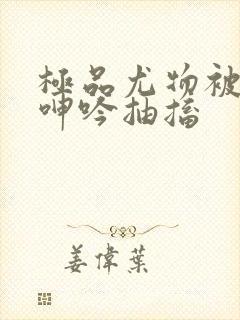 極品尤物被
呻吟抽搐
姜偉葉